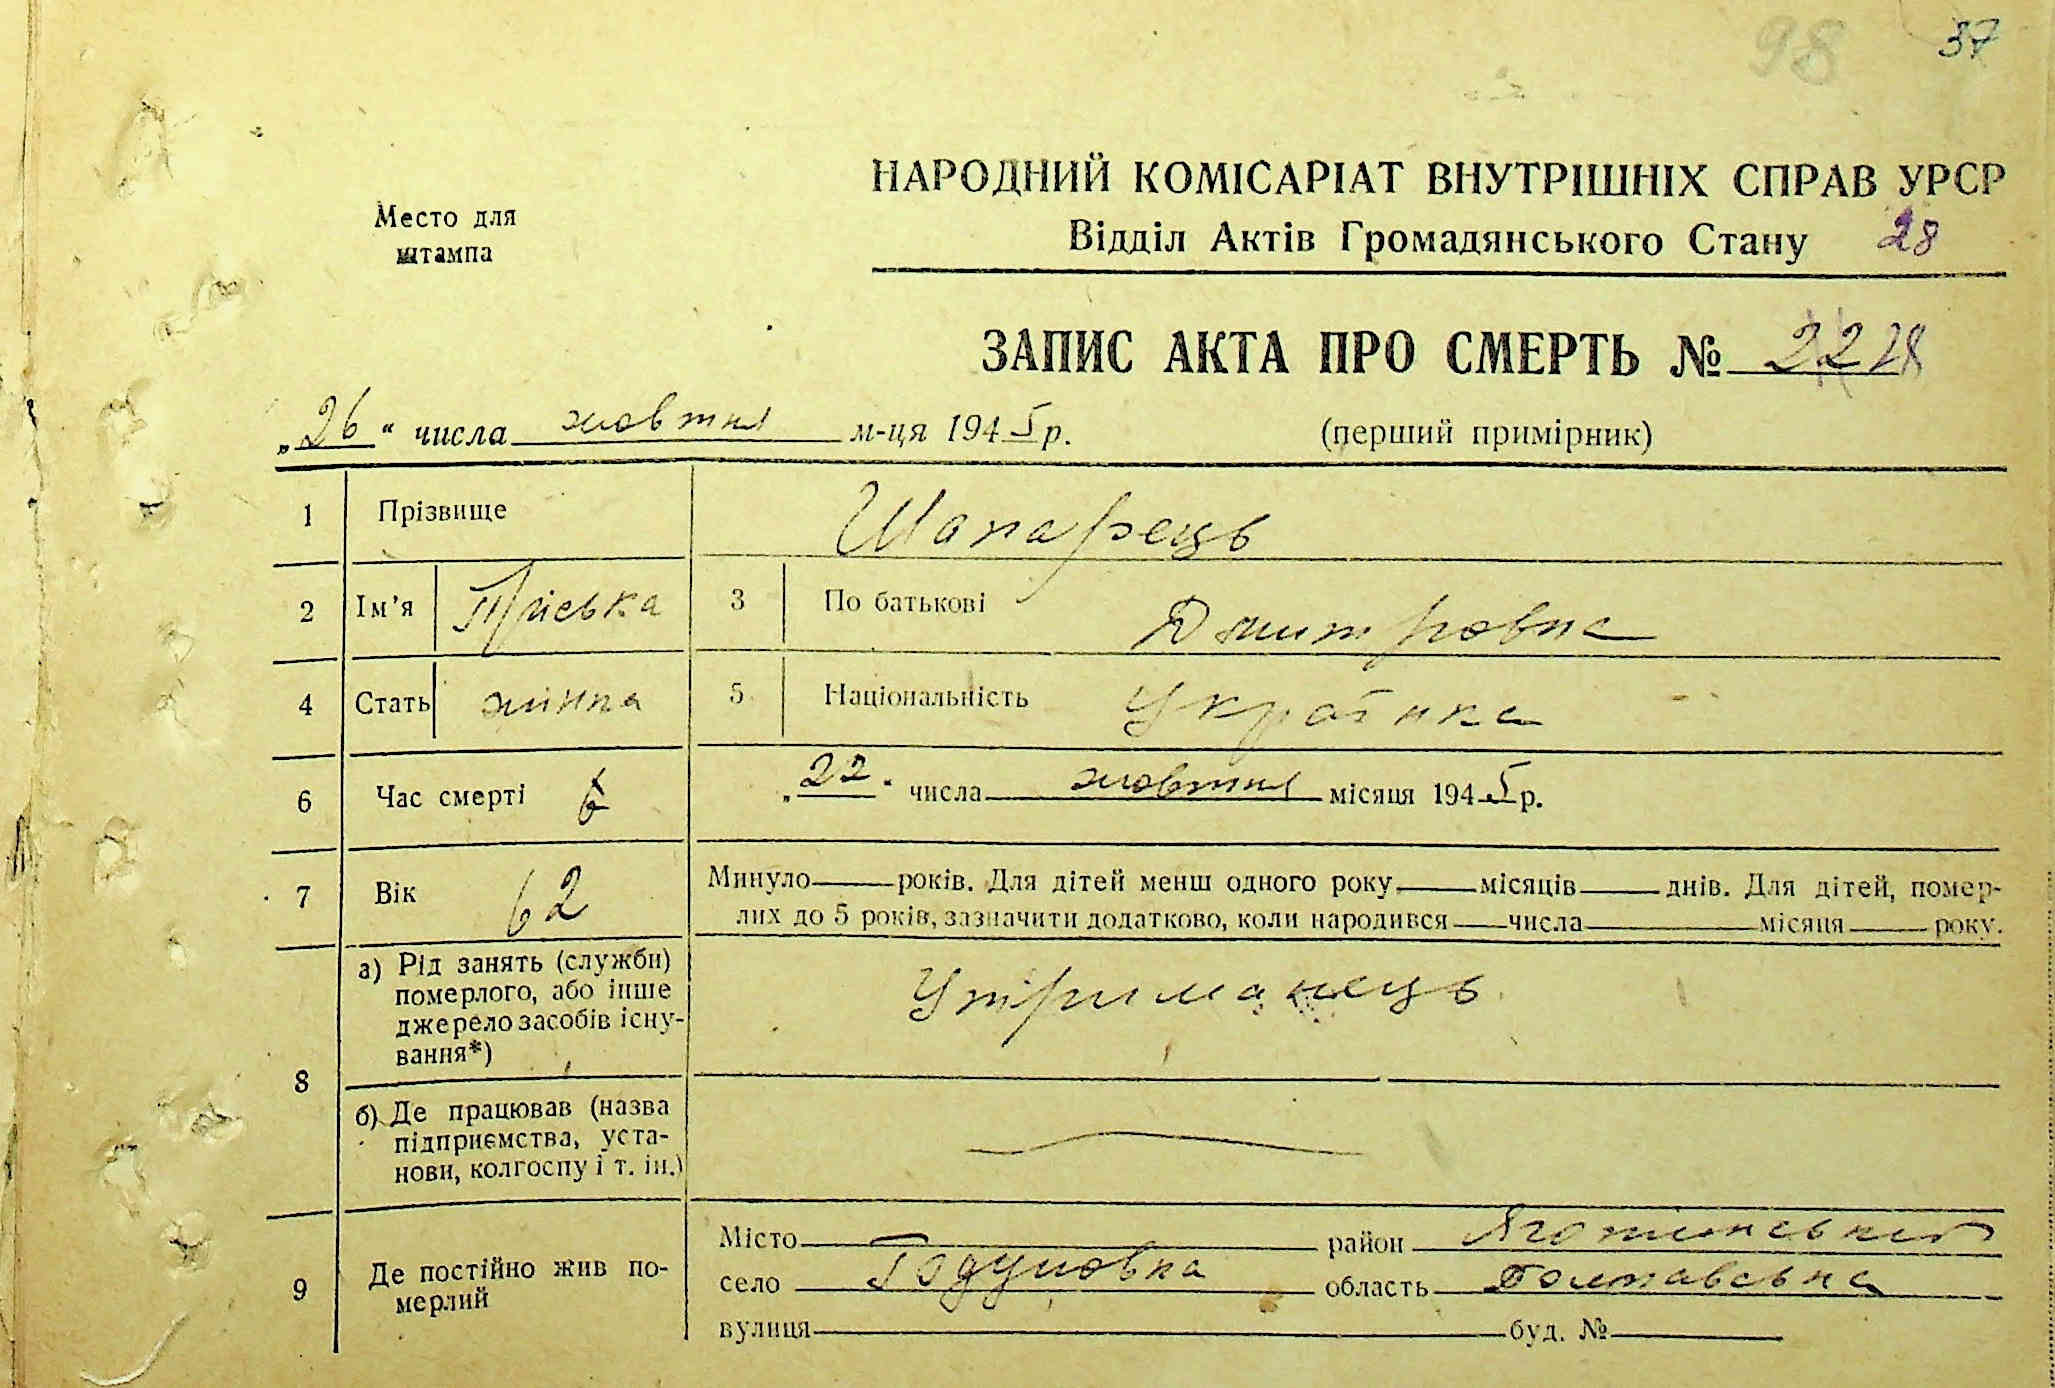 98 37
НАРОДНИЙ КОМІСАРІАТ ВНУТРІШНІХ СПРАВ УРСР
Место для
штампа
Відділ Актів Громадянського Стану 28
ЗАПИС АКТА ПРО СМЕРТЬ № 22 28
„26“ числа жовтня м-ця 1945 р. (перший примірник)
1 Прізвище Шапарець
2 Ім'я Пріська 3 По батькові Дмитровна
4 Стать жінка 5 Національність Українка
6 Час смерті „22“ числа жовтня місяця 1945 р.
7 Вік 62 Минуло років. Для дітей менш одного року місяців днів. Для дітей, помер-
лих до 5 років, зазначити додатково, коли народився числа місяця року.
8 а) Рід занять (служби)
померлого, або інше
джерело засобів існу-
вання*)
Утриманець
б) Де працював (назва
підприємства, уста-
нови, колгоспу і т. ін.)
9 Де постійно жив по-
мерлий
Місто район Яготинський
село Годуновка область Полтавська
вулиця буд. №